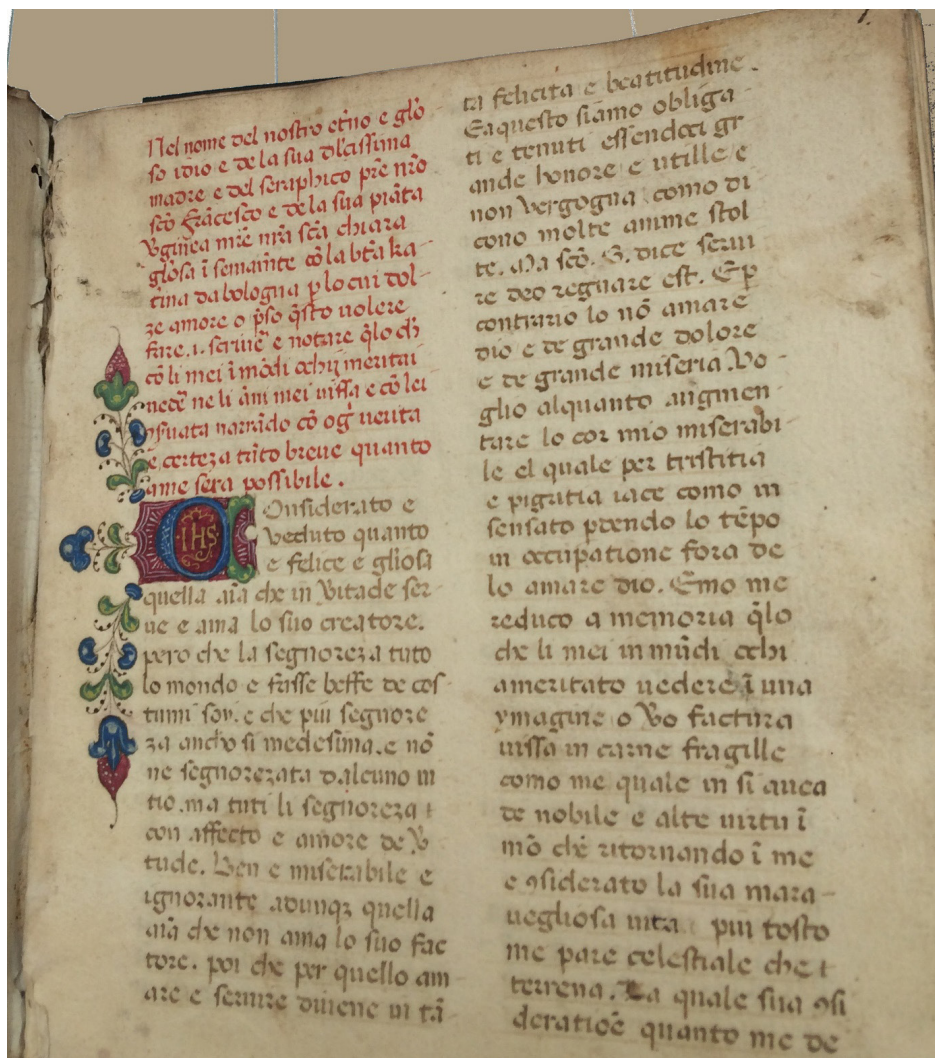 Nel nome del nostro et̃no e glõ
so idio e de la sua dl̃cissima
madre e del seraphico pr̃e nr̃o
sc̃o Frãcesco e de la sua piãta
v̾ginea mr̃e nr̃a sc̃a chiara
gl̃osa ĩ semam̃te cõ la bt̃a ka
tina da bologna ꝑ lo cui dol-
ze amore o p̃so q̃sto uolere
fare .i. scriue᷑ e notare q̃lo ch̃
cõ li mei ĩmũdi ochij meritai
uede᷑ ne li ãni mei uissa e cõ lei
ꝯ̃suata narrãdo cõ og̃ ueuta
e certeza tãto breue quanto
ame sera possibile .
IHS
Onsiderato e
veduto quanto
e felice e gl̃iosa
quella aĩa che in vita de ser-
ue e ama lo suo creatore.
pero che la segnoreza tuto
lo mondo e fasse beffe de cos-
tumi soy. e che piu segnore
za ancho si medesima. e nõ
ne segnorezata dalcuno ui
tio. ma tuti li segnoreza
con affecto e amore de v̾
tude. Ben e miserabile e
ignorante adunqꝫ quella
aĩa che non ama lo suo fac
tore. poi che per quello am
are e seruire diuene in tã
ta felicita e beatitudine.
E a questo siamo obliga-
ti e tenuti essendoci gr
ande honore e utille e
non vergogna como di-
cono molte anime stol
te. Ma sc̃o. G. dice serui
re deo regnare est. E ꝑ
contrario lo nõ amare
dio e de grande dolore
e de grande miseria. Vo-
glio alquanto augmen-
tare lo cor mio miserabi-
le el quale per tristitia
e pigritia iace como in
sensato ꝑendo lo tẽpo
in occupatione fora de
lo amare dio. E mo me
reduco a memoria q̃lo
che li mei in mũdi ochi
a meritato uedere ĩ una
ymagine o vo factura
uissa in carne fragille
como me quale in si auea
de nobile e alte uirtu ĩ
mõ che ritornando ĩ me
e ꝯsiderato la sua mara-
uegliosa uita piu tosto
me pare celestiale che
terrena. La quale sua ꝯsi
deratiõe quanto me de